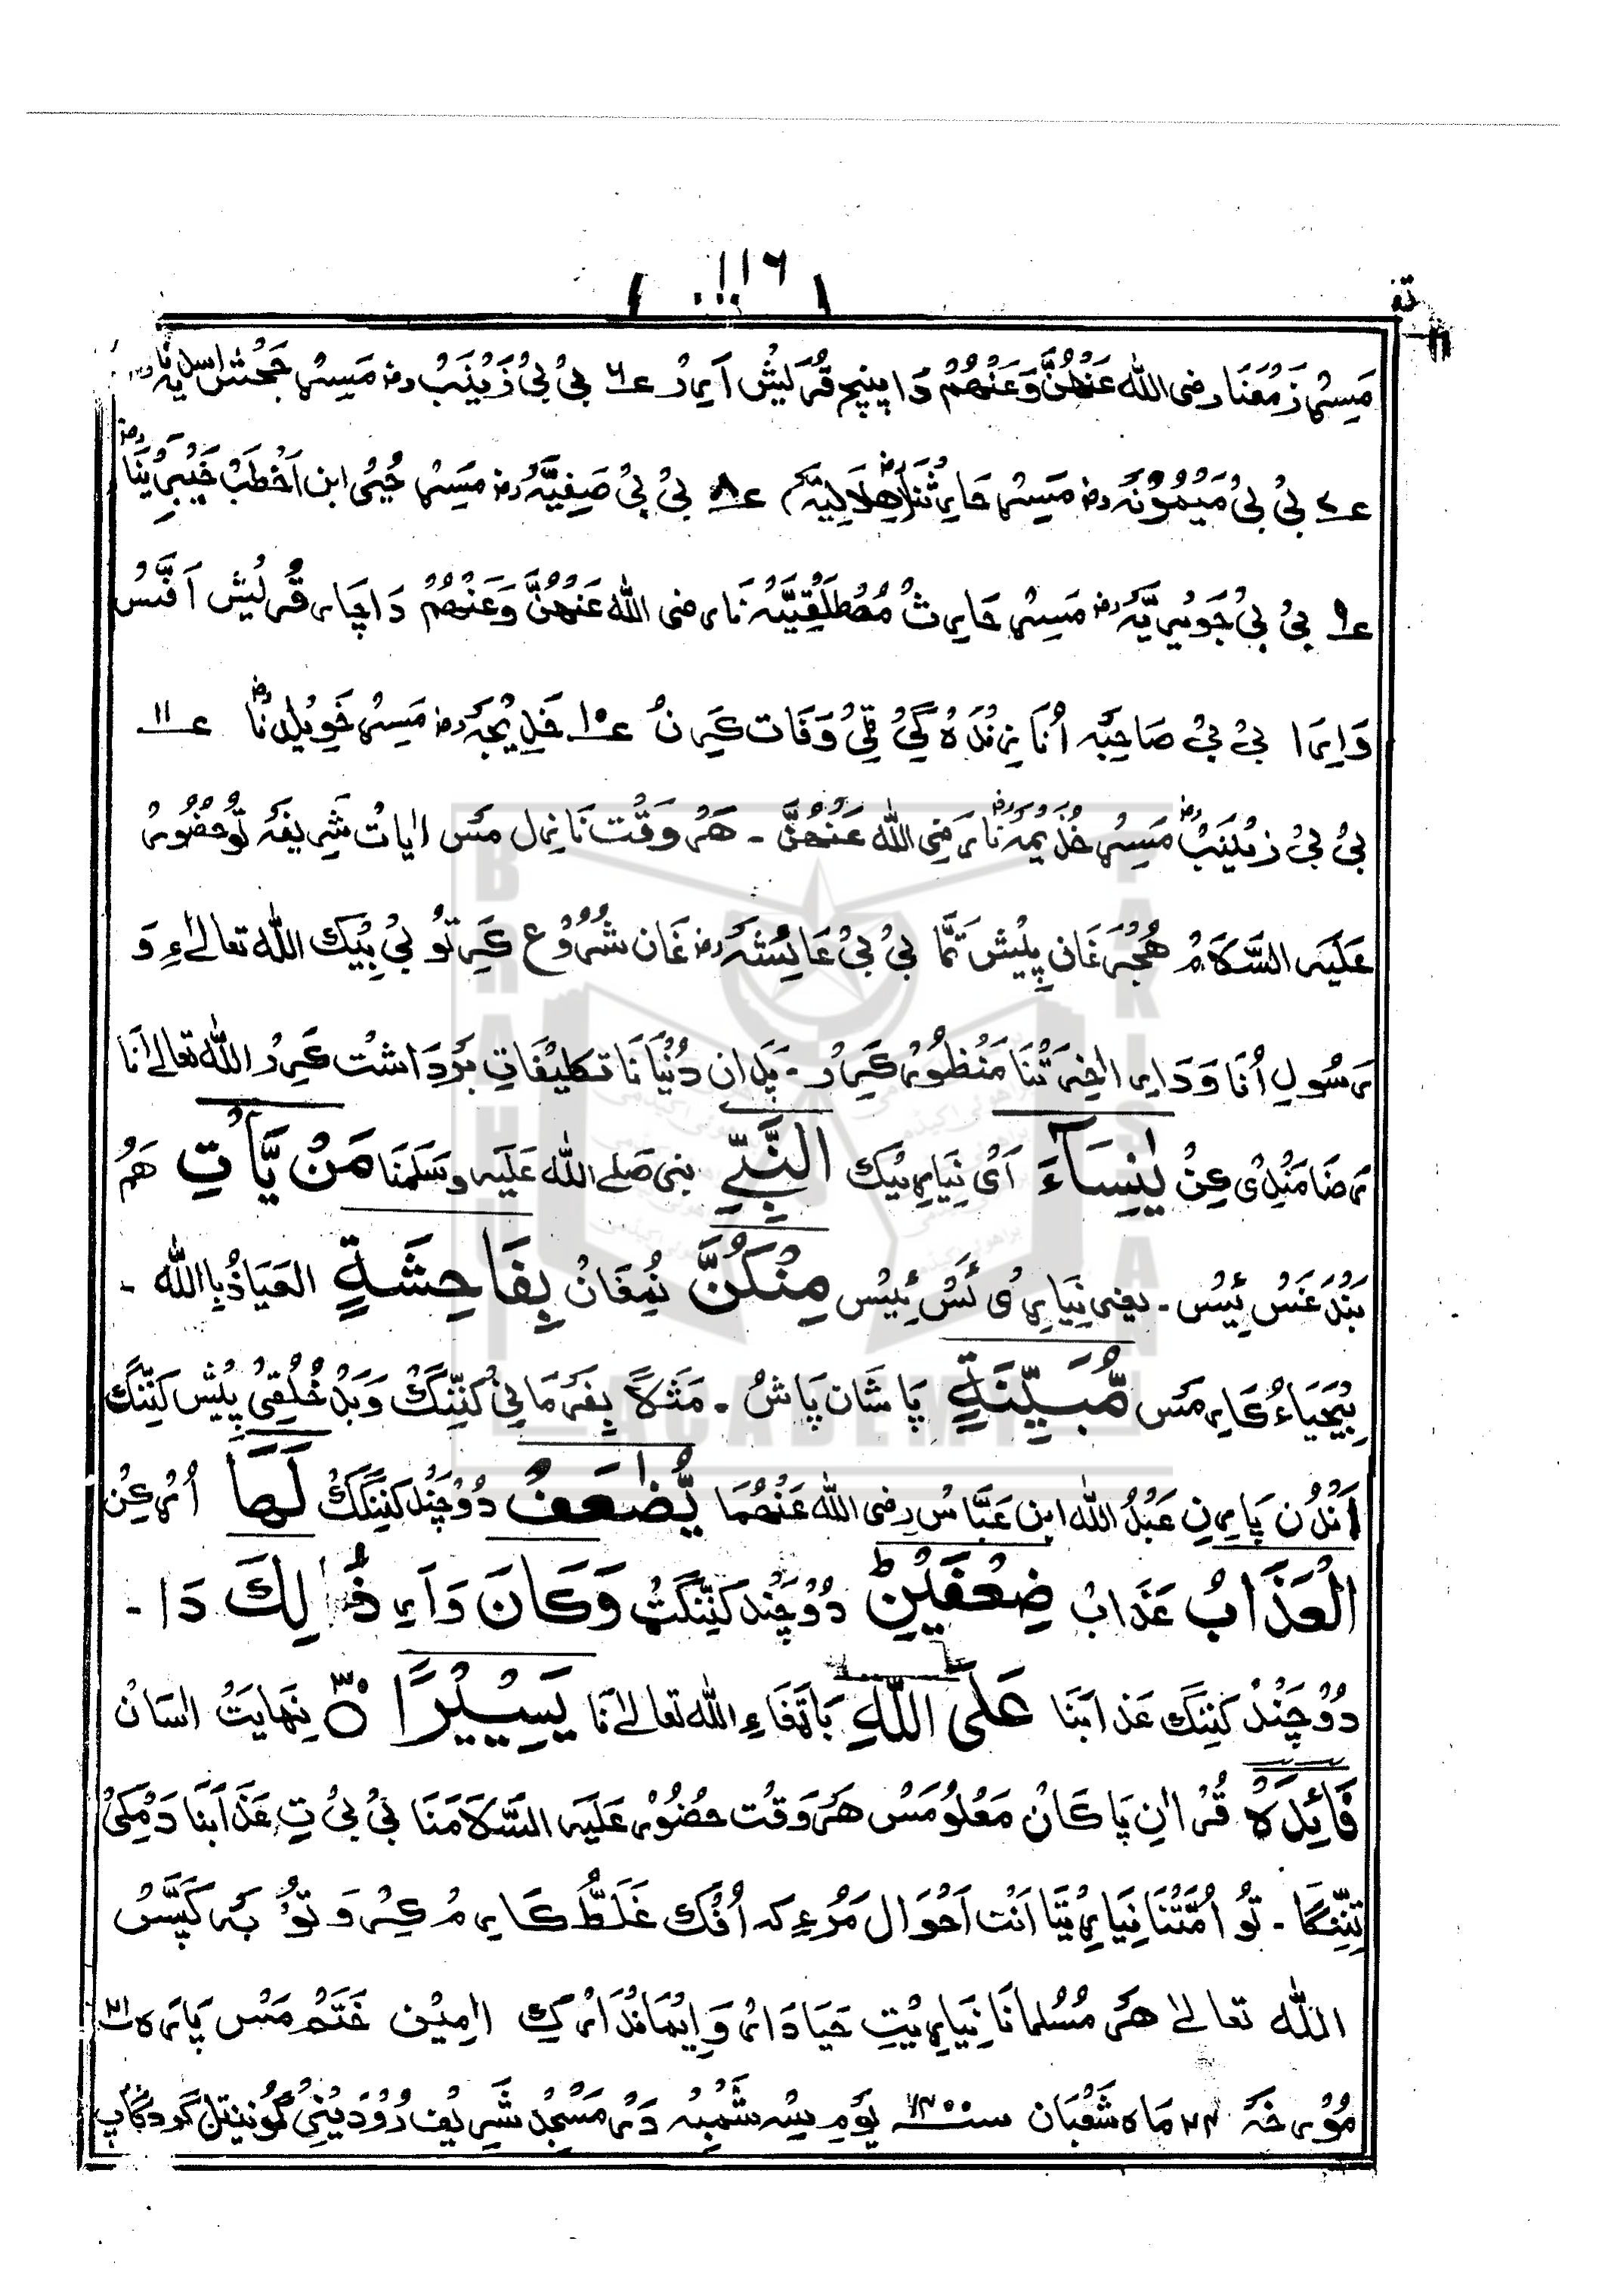 ١١٦
مَسِڑ زَمْعَنَا رضی اللہ عَنْهُنَّ وَعَنْهُمْ دَا پنچ قُرَیش اَیرُ ع٦ بِیْ بِیْ زَیْنَبْ رض مَسِڑ جَحْش
ع٧ بِیْ بِیْ مَیْمُوْنَہ رض مَسِڑ حَارِثْنَا (هِلَالِیَّہ) ع٨ بِیْ بِیْ صَفِیَّہْ رض مَسِڑ حُیَیْ ابن اَخْطَبْ خَیْبَرِیْنَا رض
ع٩ بِیْ بِیْ جَوَیْرِیَّہ رض مَسِڑ حَارِثْ مُصْطَلَقِیَّہْ نَا رضی اللہ عَنْهُنَّ وَعَنْهُمْ دَا چَار قُرَیش اَفَّسُ
وَ اِرَا بِیْ بِیْ صَاحِبَہ اُنَا زِنْدَہ گِیْ ٹِیْ وَفَات کَرِنُ ع١٠ خَدِیْجَہ رض مَسِڑ خَوِیْلِدْ نَا رض ع١١
بِیْ بِیْ زَیْنَبْ رض مَسِڑ خُذَیْمَہ نَا رض رَضِی اللہ عَنْهُنَّ - هَرْ وَقْت نَازِل مَس اٰیات شَرِیفَہ تَوْ حضُوْر
عَلَیہ السَّلَامْ هُجْرَغَان پِیْش تَمَّا بِیْ بِیْ عَائِشَہ رض غَان شُرُوْع کَرِ تَوْ بِیْ بِیْک اللہ تعالیٰ ءِ وَ
رَسُولِ اُنَا وَ دَارِ الاٰخِرَتْنَا مَنْظُوْر کَرِرُ - پَدَان دُنْیَا نَا تکلِیْفَاتِ بَرْدَاشْت کَرِرُ اللہ تعالےٰ نَا
رَضَا مَنْدِیْ کِنْ یٰنِسَآءَ اَیْ نِیَاڑِیْک النَّبِیِّ نبی صَلے اللہ عَلَیہ وسَلَمنَا مَنْ یَّأْتِ هَرْ
بَنْدَغَسْ ئِسُ - یعنی نِیَاڑِیْ ئَسْ ئِیْس مِنْکُنَّ نُمْغَان بِفَاحِشَةٍ العیَاذُ بِااللہ -
بِیْحَیَاءُ کَارِمَس مُّبَیِّنَةٍ پَاشَان پَاشُ - مَثَلًا بِفَرْمَانِیْ کَنِّنْگْ وَبَدْ خُلُقِیْ پِیْش کَنِّنْگ
اَنْدُن پَارِن عَبْدُ اللہ ابن عَبَّاسْ رضی اللہ عَنْهُمَا یُّضٰعَفْ دُوْچَنْد کَنِّنْگْ لَهَا اُڑ کِنْ
الْعَذَابُ عَذَابْ ضِعْفَیْنِ ؕ دُوْ چَنْد کَنِّنْگَٹ وَکَانَ وَ اَرِ ذٰلِكَ دَا -
دُوْ چَنْدْ کَنِنْگ عَذَابَنَا عَلَی اللّٰہِ بَاتْفَاءِ اللہ تعالےٰ نَا یَسِیْرًا ○ نِهَایَتْ اٰسَان
فَائِدَہْ قُرْاٰنِ پَاکَان مَعْلُومَسْ هَرْ وَقْت حضُوْر عَلَیہ السَّلَامَنَا بِیْ بِیْ تِ عَذَابَنَا دَمْکِیْ
تِنِّنْگَا - تَوْ اُمَّتْنَا نِیَاڑِیْتَا اَنْت اَحْوَال مَرْءِ کہ اُفْک غَلَطُ کَارِمْ کِرْ وَ تَوْ بَہ کَپَّسُ
اللہ تعالیٰ هَرْ مُسْلمانَا نِیَاڑِیْتِ حَیَادَار وَ اِیْمَانْدَار کِ اٰمِیْن خَتَمْ مَسْ پَارَہ ٢١
مُوْرخَہ ٢٣ مَاہ شَعْبَان سنه ١٣٠٠ یَوْم سِہ شَمْبِہ دَر مَسْجِدْ شَرِیف دُوْدَیْنِیْ
BRAHUI ACADEMY PAKISTAN